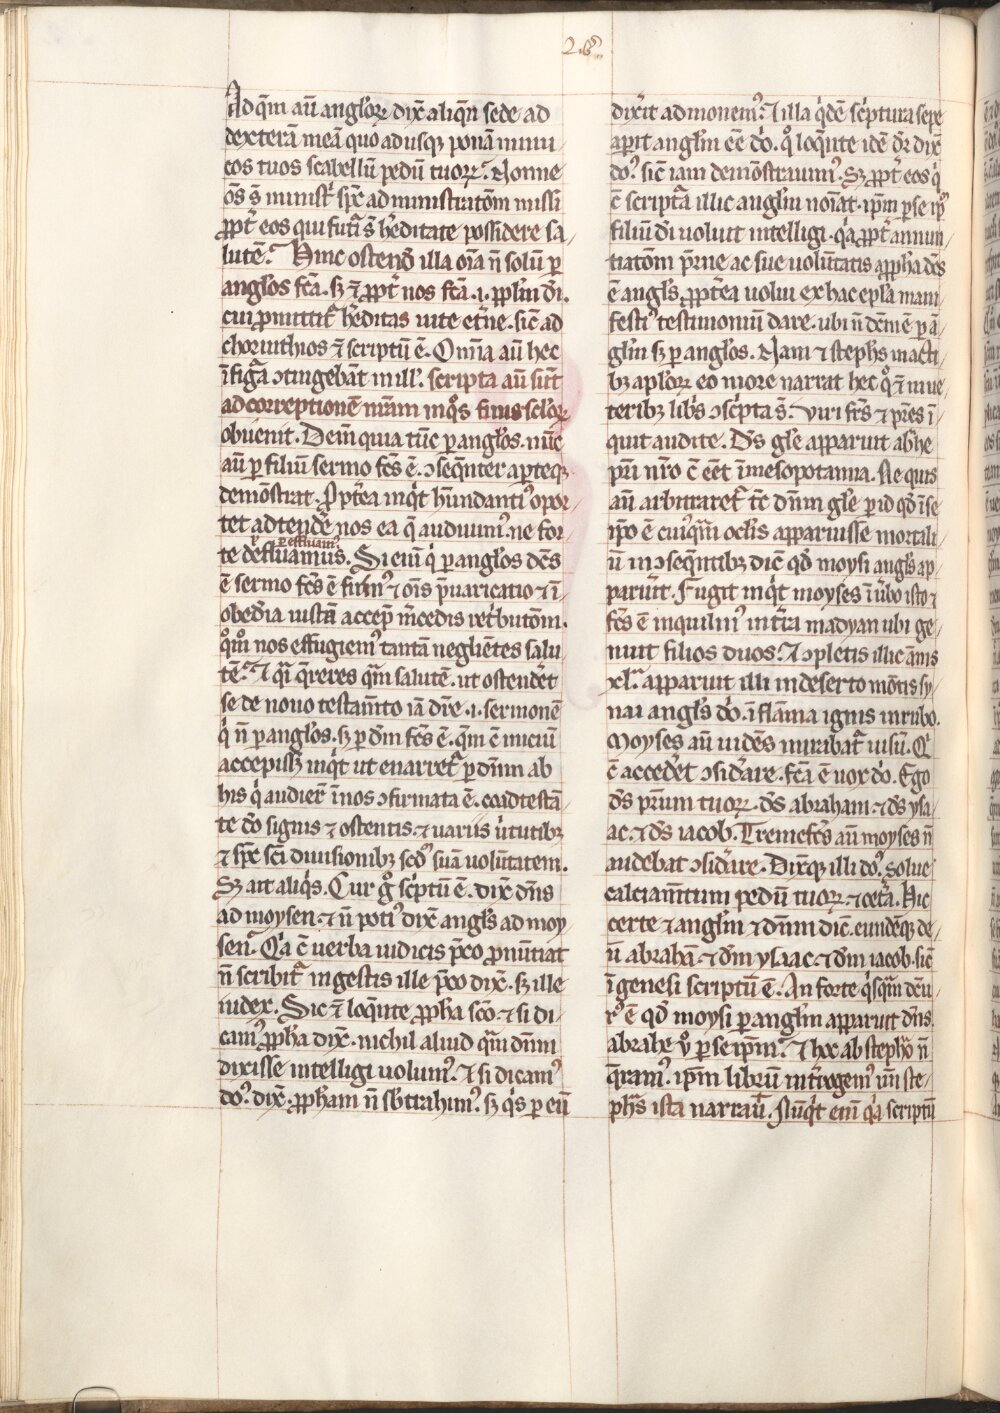 2.us
Ad q̄m aū angloꝝ dix̄ aliqn̄ sede ad
dexterā meā quo ad usqꝫ ponā inimi
cos tuos scabellū pedū tuoꝝ. Nonne
oēs s̄ minist͛ sp̄c ad ministratōm missi
ꝓpt͛ eos qui fut͛i s̄ h̄editate possidere sa/
lutē. Hinc ostend͛ illa oīa n̄ solū ꝑ
anglos fc̄a. sꝫ ⁊ ꝓpt͛ nos fc̄a .i. ppl̄m dī.
cui ꝓmittit͛ h̄editas uite et͛ne. sic̄ ad
chorinthios ⁊ scriptū ē. Om̄ia aū hec
ī fig͛a ↄtingebāt in ill'. scripta aū sūt
ad correptionē nr̄am in qͦs finis sclōꝝ
obuenit. Dem̄ quia tūc ꝑ anglos. nūc
aū ꝑ filiū sermo fc̄s ē. ↄseqn̄ter aꝑteqꝫ
demōstrat. Pꝑt̄ea inq̇t hūndanti᾿ opor/
tet adtendē nos ea q̄ audiuim᾿. ne for/
ꝑ effluam᾿
te defluamus. Si eni̅ q̇ ꝑ anglos dc̄s
ē sermo fc̄s ē firm᾿ ⁊ oīs p̄uaricatio ⁊ ī/
obed̄ia iustā accep̄ m̄cedis ret͛butōm.
qͦm͂ nos effugiem᾿ tantā neglīētes salu
tē. ⁊ q͛i q̄reres q͛m salutē. ut ostend͛et
se de nouo testam̄to iā dr̄e .i. sermonē
q̇ n̄ ꝑ anglos. sꝫ ꝑ dn̄m fc̄s ē. q̄m ē iniciū
accepissꝫ inq̇t ut enarret͛ ꝑ dn̄m ab
his q̇ audier̄ ī nos ↄfirmata ē. coadtestā/
te dō signis ⁊ ostentis. ⁊ uariis u͛tutibꝫ
⁊ sp̄c sc̄i diuisionibꝫ scd̄' suā uolūtatem.
Sꝫ ait aliq̇s. Cur gͦ sc͛ptū ē. dix̄ dn̄s
ad moysen. ⁊ n̄ poti᾿ dix̄ angl̄s ad moy
sen. Q͛a c̄ uerba iudicis p̄co ꝓnūtiat
n̄ scribit͛ in gestis ille p̄co dix̄. sꝫ ille
iudex. Sic ⁊ loqn̄te ꝓpha sc̄o. ⁊ si di/
cam᾿ ꝓpha dix̄. nichil aliud q͛m dn̄m
dixisse intelligi uolum᾿. ⁊ si dicam᾿
do᾿. dix̄. ꝓpham n̄ sb̄trahim᾿. sꝫ q̇s ꝑ eū
dixit admonem᾿. ⁊ illa q̇dē sc͛ptura sepe
aꝑit angl̄m eē dō. qͦ loqn̄te idē dr̄ dix̄
do᾿. sic̄ iam demōstrauim᾿. Sꝫ ꝓpt͛ eos q̇
c̄ scriptā illic angl̄m noīat. ip̄m ꝑ se ip̄'
filiū dī uoluit intelligi. q͛a ꝓpt͛ annun/
tiatōm p̄rne ac sue uolūtatis aꝓpha dc̄s
ē angl̄s ꝓpt̄ea uolui ex hac epl̄a mani/
festi᾿ testimoniū dare. ubi n̄ dc̄m ē ꝑ ā/
gl̄m sꝫ ꝑ anglos. Nam ⁊ stephs in acti/
bꝫ aploꝝ eo more narrat hec qͦ ⁊ in ue/
teribꝫ lib͛s ↄsc͛pta s̄. Viri fr̄s ⁊ pr̄es ī
quit audite. D̄s gl̄e apparuit abr̄he
pr̄i nr̄o c̄ eēt ī mesopotamia. Ne quis
aū arbitraret͛ tc̄ dn̄m gl̄e ꝑ id qđ ī se
ip̄o ē cui᾿q͛m oclis apparuisse mortali/
ū in ↄseqn̄tibꝫ dic̄ qđ moysi angl̄s ap/
paruit. Fugit inq̇t moyses ī u͛bo isto ⁊
fc̄s ē inquilin᾿ in t͛ra madyan ubi ge/
nuit filios duos. ⁊ ↄpletis illic ānis
xl͛a apparuit illi in deserto mōtis sy/
nai angl̄s dō. ī flāma ignis in rubo.
Moyses aū uidēs mirabat͛ uisū. Et
c̄ acced͛et ↄsid͛are. fc̄a ē uox dō. Ego
d̄s pr̄um tuoꝝ. d̄s abraham. ⁊ d̄s ysa/
ac. ⁊ d̄s iacob. Tremefc̄s aū moyses n̄
audebat ↄsid͛are. Dix̄qꝫ illi do᾿. solue
calciam̄tum pedū tuoꝝ. ⁊ cet͛a. Hic
certe ⁊ angl̄m ⁊ dn̄m dic̄. eundēqꝫ de/
ū abrahā. ⁊ dm̄ ysaac. ⁊ dm̄ iacob. sic̄
ī genesi scriptū ē. An forte q̇sq͛m dc̄u/
r᾿ ē qđ moysi ꝑ angl̄m apparuit dn̄s.
abrahe u͛ͦ ꝑ se ip̄m. ⁊ hoc ab stephō n̄
q̄ram᾿. ip̄m librū int͛rogem᾿ un̄ ste/
phs ista narrau͛. Nūq̇t eni̅ q͛a scriptū